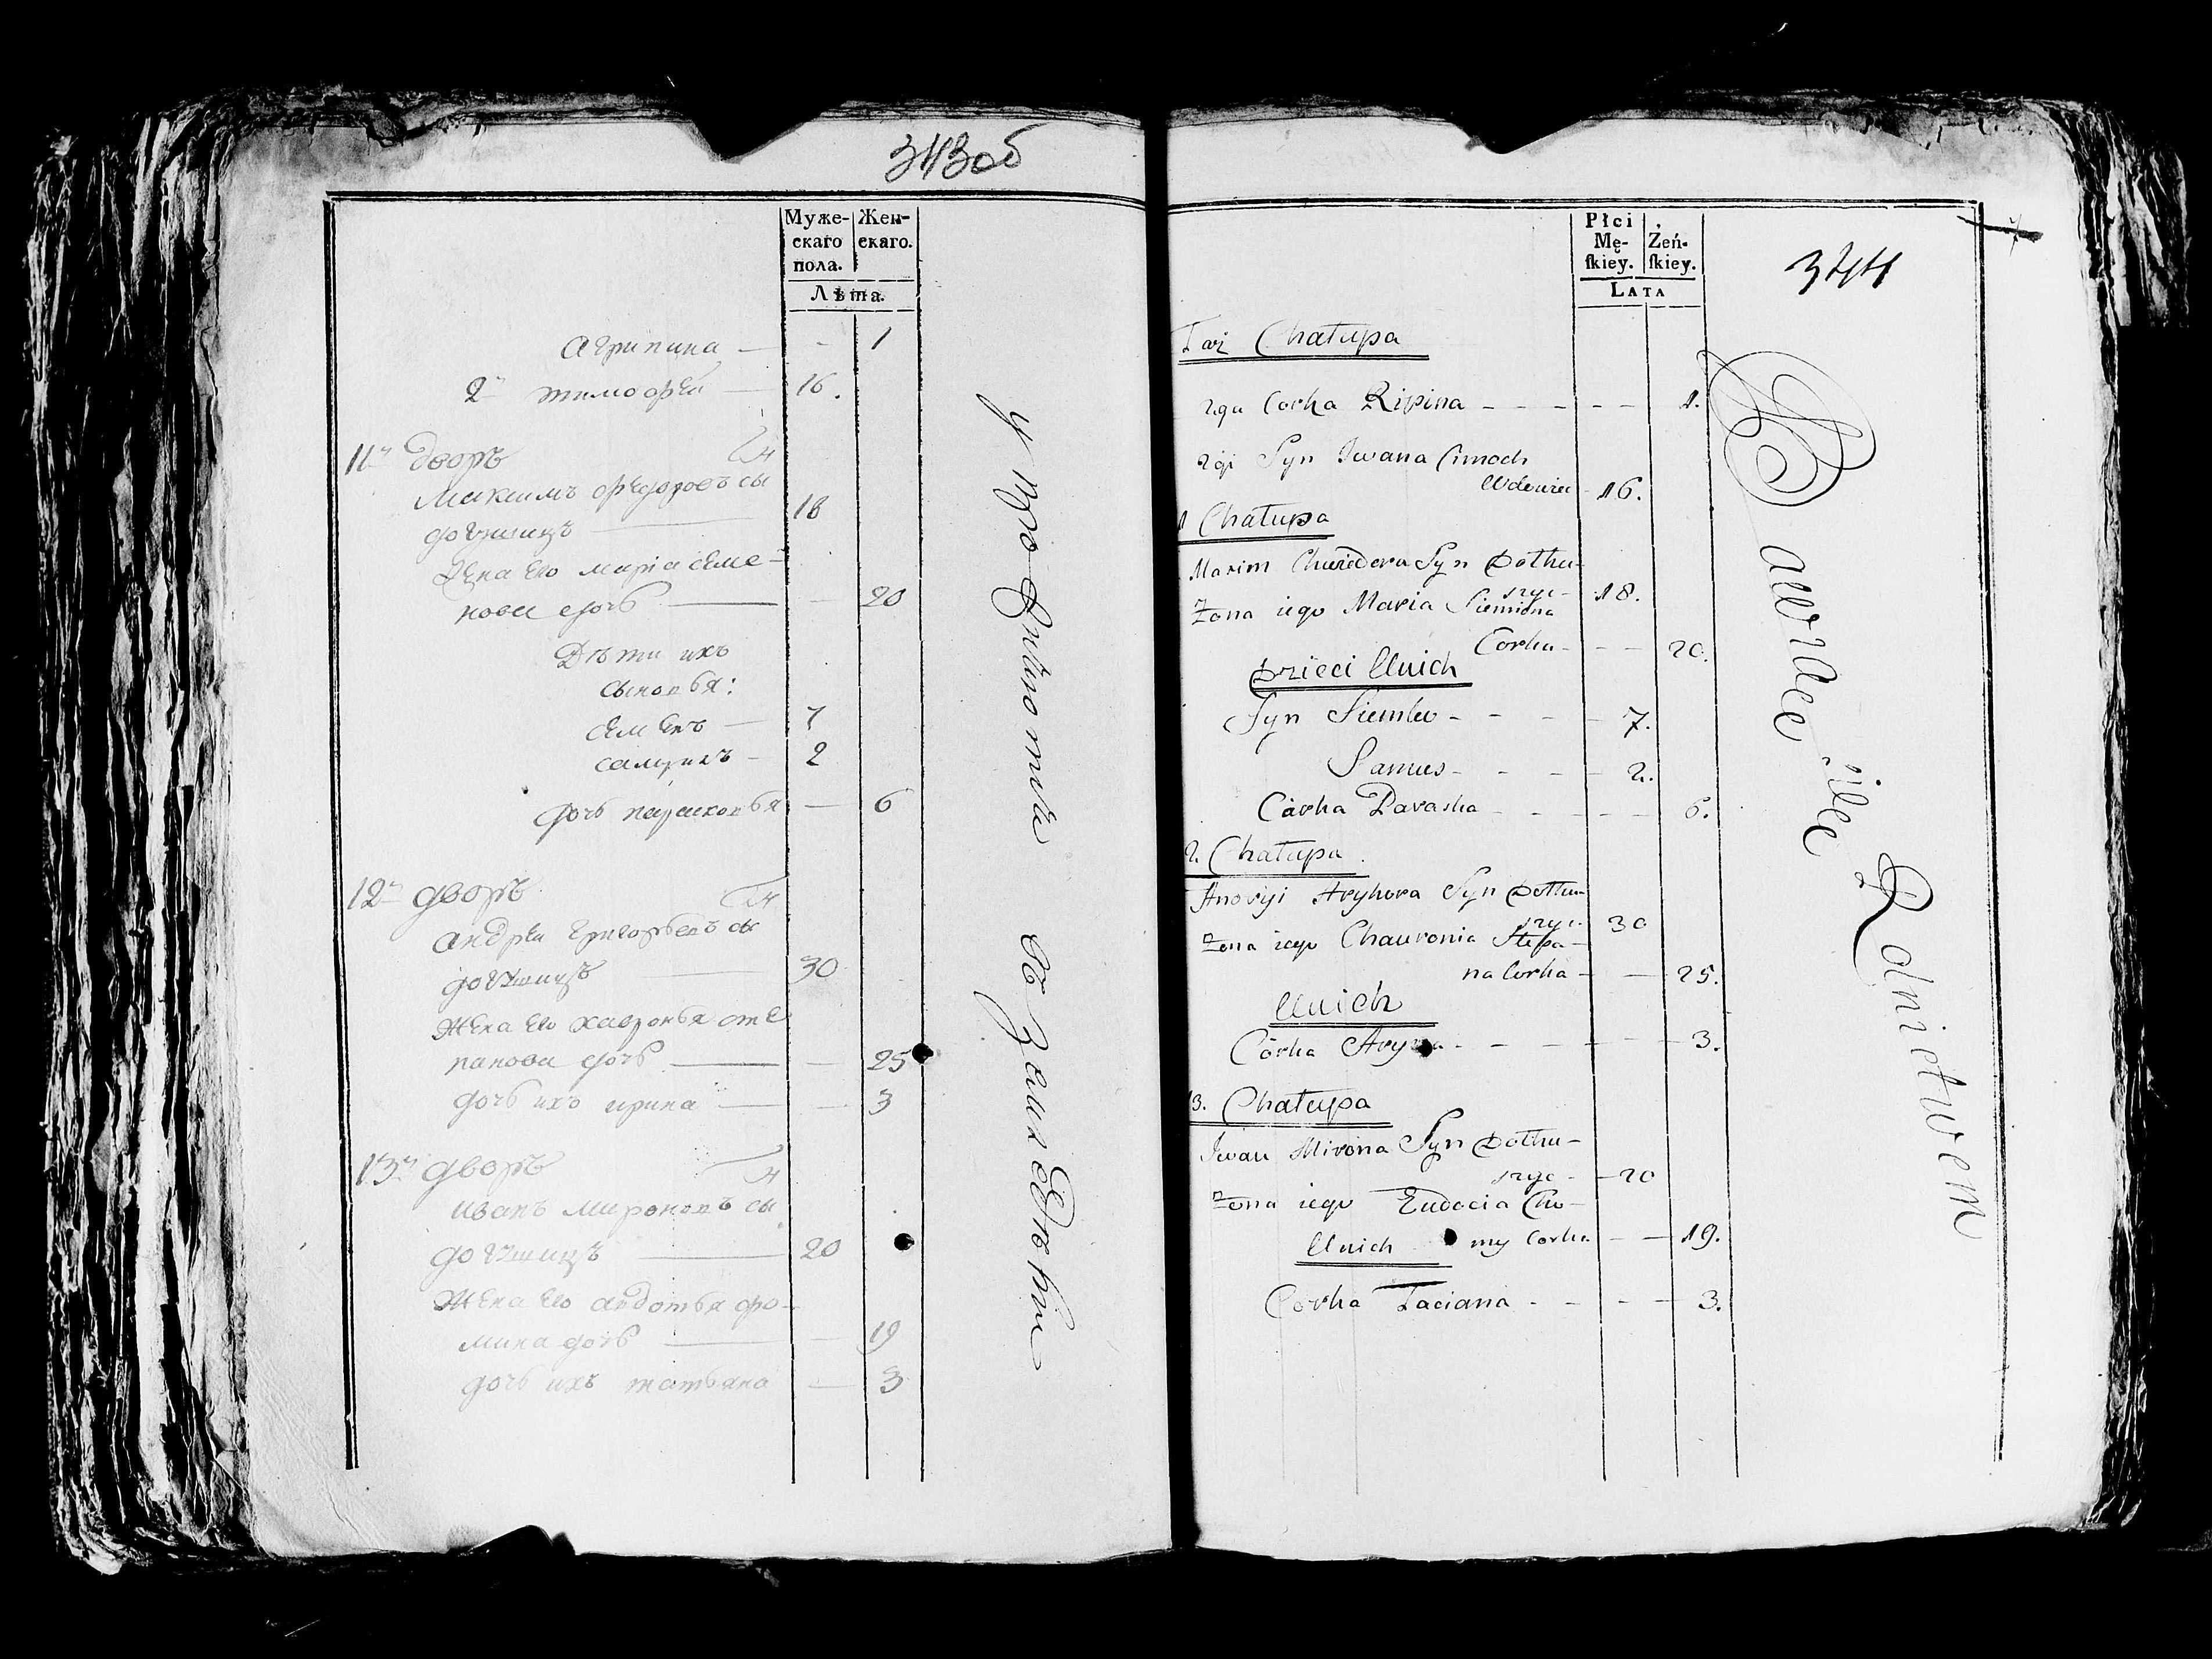 343об
Муже-
скаго
пола.
Жен-
скаго.
Лѣта.
Агрипина — - 1
2й тимофей — 16.
11й дворъ
Максимъ федоровъ сы
довгшицъ — 18
Жена его марiа семе-
нова дочь — — 20
Дѣти ихъ
сыновья:
семенъ — 7
самуилъ — 2
дочь парасковья — 6
12й дворъ
андрей григорьевъ сы
довгшицъ — 30
Жена его хавронья сте
панова дочь — — 25
дочь ихъ ирина — — 3
13й дворъ
иванъ мироновъ сы
довгшицъ — 20
Жена его авдотья фо-
мина дочь — — 19
дочь ихъ татьяна — 3
у
въ
344
Płci
Mę-
ſkiey.
Żeń-
ſkiey.
LATA
Taż Chałupa
2ga Corka Ripina - - - - - 1.
2gi Syn Iwana Cimoch
Wdowiec - 16.
1 Chałupa
Maxim Chwiedora Syn Dothu-
szyc - 18.
Żona iego Maria Siemiona
Corka - - - 20.
Dzieci Unich
Syn Siemko - - - - 7.
Samus - - - - 2.
Córka Paraska - - - - - 6.
2. Chałupa
Andryi Hryhora Syn Dothu-
szyc - 30
Żona iego Chauronia Stepa-
na Corka - - - 25.
Unich
Córka Aryna - - - - - - 3.
13. Chałupa
Iwan Mirona Syn Dothu-
szyc - - 20
Żona iego Eudocia Cho-
my Corka - - - 19.
Unich
Corka Taciana - - - - - 3.
Rolnictwem